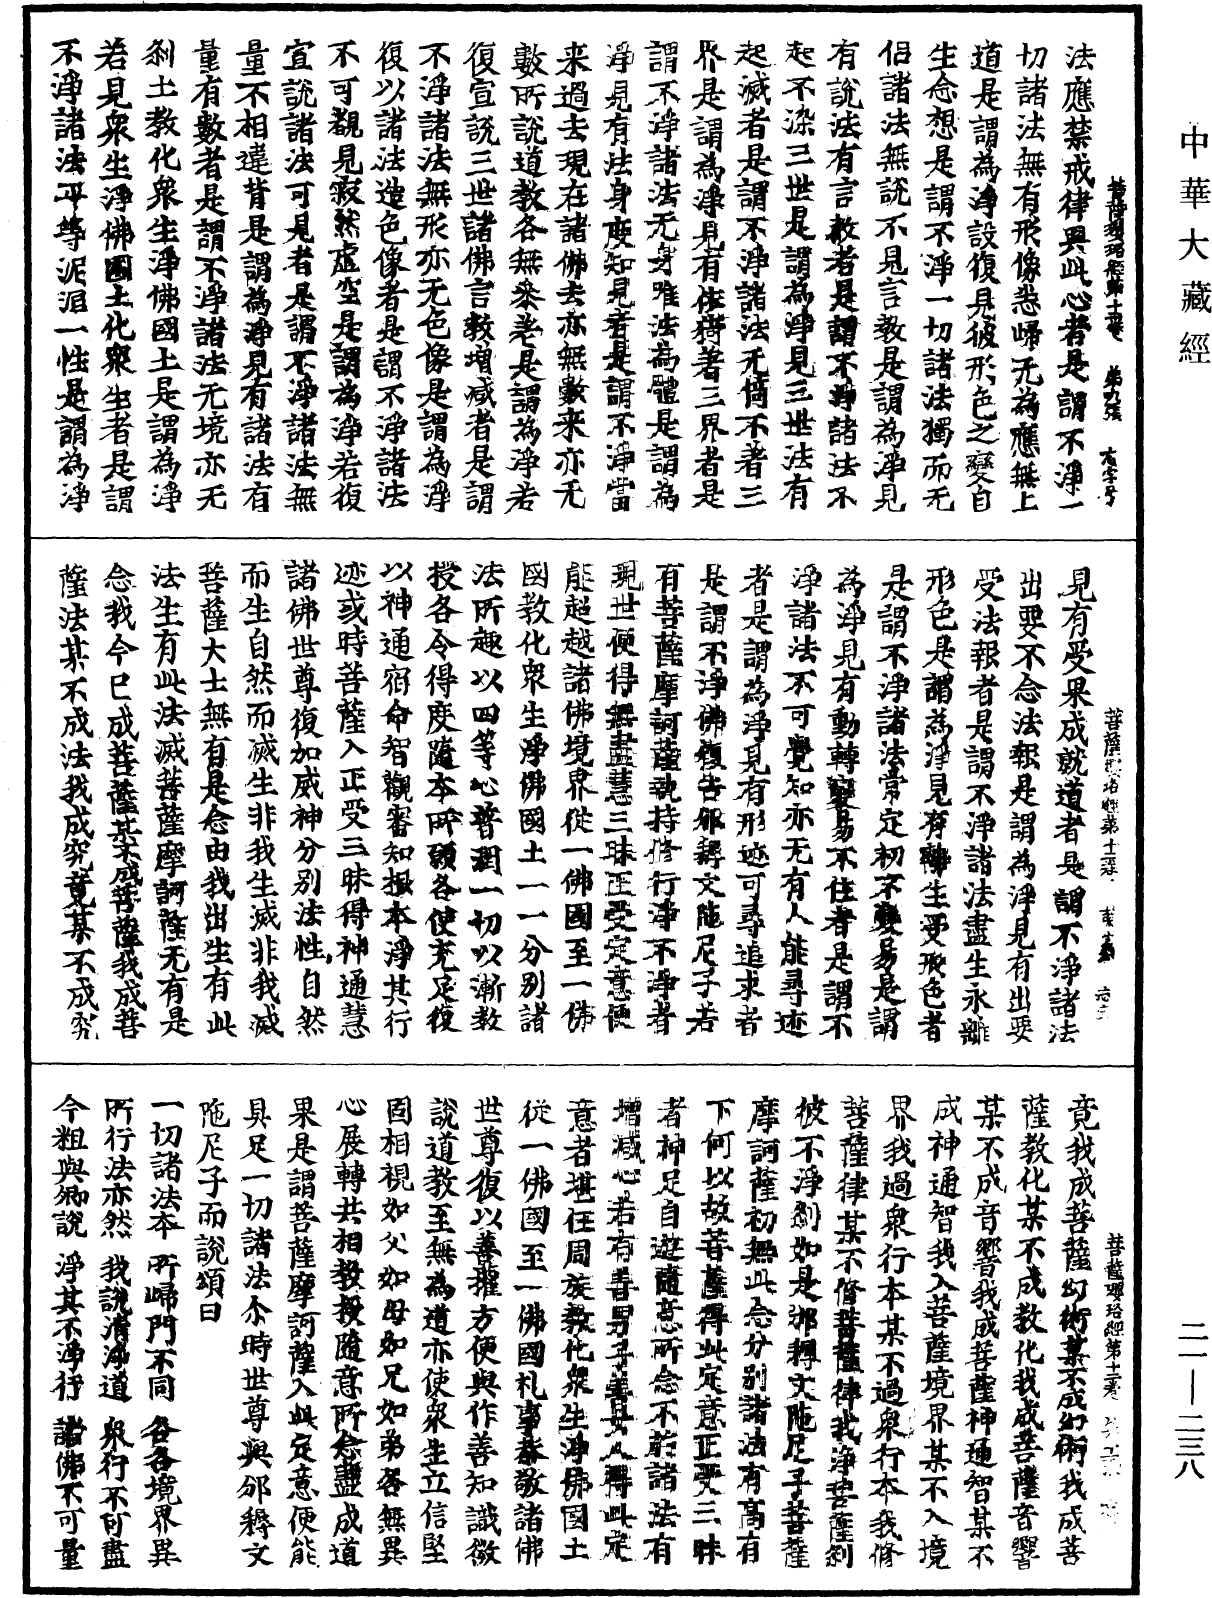 中華大藏經
法應禁戒律興此心者是謂不淨一
切諸法無有形像悉歸无為應無上
道是謂為淨設復見彼形色之變自
生念想是謂不淨一切諸法獨而无
侶諸法無說不見言教是謂為淨見
有說法有言教者是謂不淨諸法不
起不染三世是謂為淨見三世法有
起滅者是謂不淨諸法无猗不著三
界是謂為淨見有依猗著三界者是
謂不淨諸法无身唯法為體是謂為
淨見有法身度知見者是謂不淨當
来過去現在諸佛去亦無數来亦无
數所說道教各無叅差是謂為淨若
復宣說三世諸佛言教增减者是謂
不淨諸法無形亦无色像是謂為淨
復以諸法造色像者是謂不淨諸法
不可覩見寂然虛空是謂為淨若復
宣說諸法可見者是謂不淨諸法無
量不相違背是謂為淨見有諸法有
量有數者是謂不淨諸法无境亦无
剎土教化衆生淨佛國土是謂為淨
若見衆生淨佛國土化衆生者是謂
不淨諸法平等泥洹一性是謂為淨
見有受果成就道者是謂不淨諸法
出要不念法報是謂為淨見有出要
受法報者是謂不淨諸法盡生永離
形色是謂為淨見有生受形色者
是謂不淨諸法常定初不變易是謂
為淨見有動轉變易不住者是謂不
淨諸法不可覺知亦无有人能尋迹
者是謂為淨見有形迹可尋追求者
是謂不淨佛復告邠耨文陁尼子若
有菩薩摩訶薩執持修行淨不淨者
現世便得無盡慧三昧正受定意便
能超越諸佛境界從一佛國至一佛
國教化衆生淨佛國土一一分別諸
法所趣以四等心普潤一切以漸教
授各令得度隨本所願各使充足復
以神通宿命智觀審知根本淨其行
迹或時菩薩入正受三昧得神通慧
諸佛世尊復加威神分別法性自然
而生自然而滅生非我生滅非我滅
菩薩大士無有是念由我出生有此
法生有此法滅菩薩摩訶薩无有是
念我今已成菩薩某不成菩薩我成菩
薩法某不成法我成究竟某不成究
竟我成菩薩幻術某不成幻術我成菩
薩教化某不成教化我成菩薩音響
某不成音響我成菩薩神通智某不
成神通智我入菩薩境界某不入境
界我過衆行本某不過衆行本我修
菩薩律某不修菩薩律我淨菩薩剎
彼不淨剎如是邠耨文陁尼子菩薩
摩訶薩初無此念分別諸法有高有
下何以故菩薩得此定意正受三昧
者神足自遊隨意所念不於諸法有
增减心若有善男子善女人得此定
意者堪任周旋教化衆生淨佛國土
從一佛國至一佛國礼事恭敬諸佛
世尊復以善權方便與作善知識徵
說道教至無為道亦使衆生立信堅
固相視如父如母如兄如弟各無異
心展轉共相教授隨意所念盡成道
果是謂菩薩摩訶薩入此定意便能
具足一切諸法尒時世尊與邠耨文
陁尼子而說頌曰
一切諸法本　所歸門不同　各各境界異
所行法亦然　我說清淨道　衆行不可盡
今粗與卿說　淨其不淨行　諸佛不可量
二一—二三八